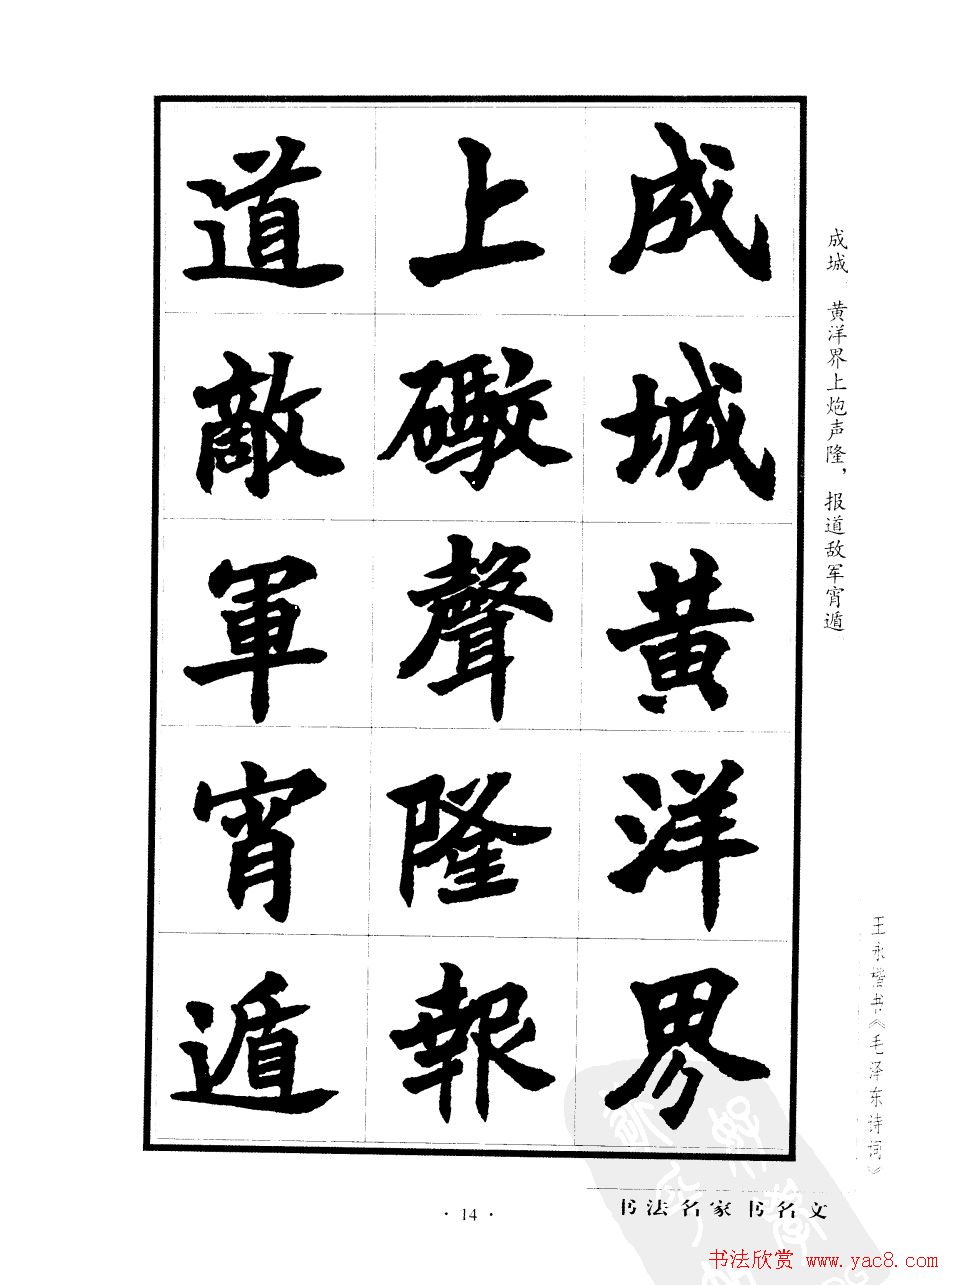 成城黄洋界
上礮聲隆報
道敵軍宵遁
成城。黄洋界上炮声隆，报道敌军宵遁
王永楷书《毛泽东诗词》
· 14 ·
书法名家书名文
书法欣赏 www.yac8.com